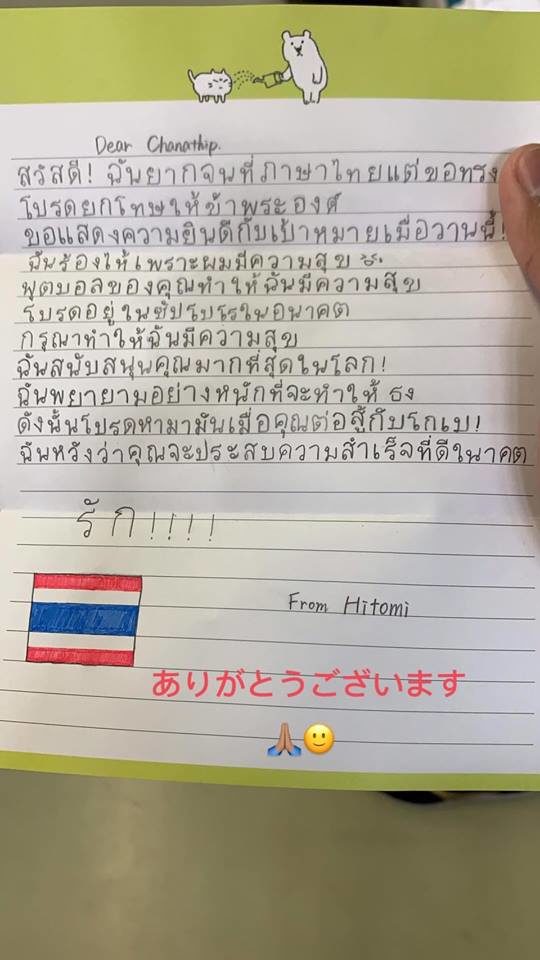 Dear Chanathip.
สวัสดี! ฉันยากจนที่ภาษาไทยแต่ขอทรง
โปรดยกโทษให้ข้าพระองค์
ขอแสดงความยินดีกับเป้าหมายเมื่อวานนี้!
ฉันร้องไห้เพราะผมมีความสุข
ฟุตบอลของคุณทำให้ฉันมีความสุข
โปรดอยู่ในซัปโปโรในอนาคต
กรุณาทำให้ฉันมีความสุข
ฉันสนับสนุนคุณมากที่สุดในโลก!
ฉันพยายามอย่างหนักที่จะทำให้ ธง
ดังนั้นโปรดหามามันเมื่อคุณต่อสู้กับโกเบ!
ฉันหวังว่าคุณจะประสบความสำเร็จที่ดีในาคต
รัก!!!!
From Hitomi
ありがとうございます
🙏🏽🙂